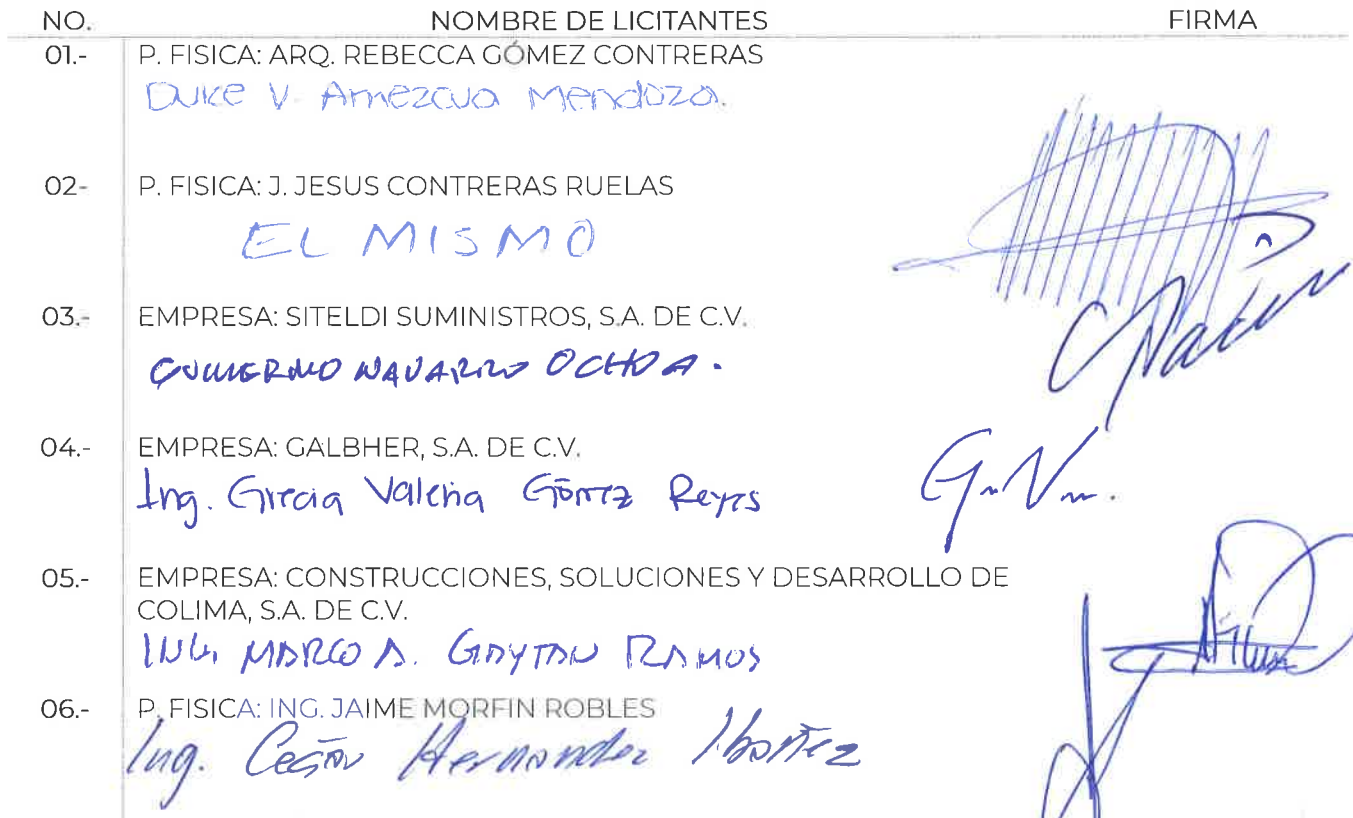 NO. NOMBRE DE LICITANTES FIRMA
01.- P. FISICA: ARQ. REBECCA GÓMEZ CONTRERAS
Dulce V. Amezcua Mendoza.
02- P. FISICA: J. JESUS CONTRERAS RUELAS
EL MISMO
03.- EMPRESA: SITELDI SUMINISTROS, S.A. DE C.V.
GUILLERMO NAVARRO OCHOA.
04.- EMPRESA: GALBHER, S.A. DE C.V.
Ing. Grecia Valeria Gómez Reyes
05.- EMPRESA: CONSTRUCCIONES, SOLUCIONES Y DESARROLLO DE
COLIMA, S.A. DE C.V.
ING. MARCO A. GAYTAN RAMOS
06.- P. FISICA: ING. JAIME MORFIN ROBLES
Ing. Cesar Hernandez Ibañez